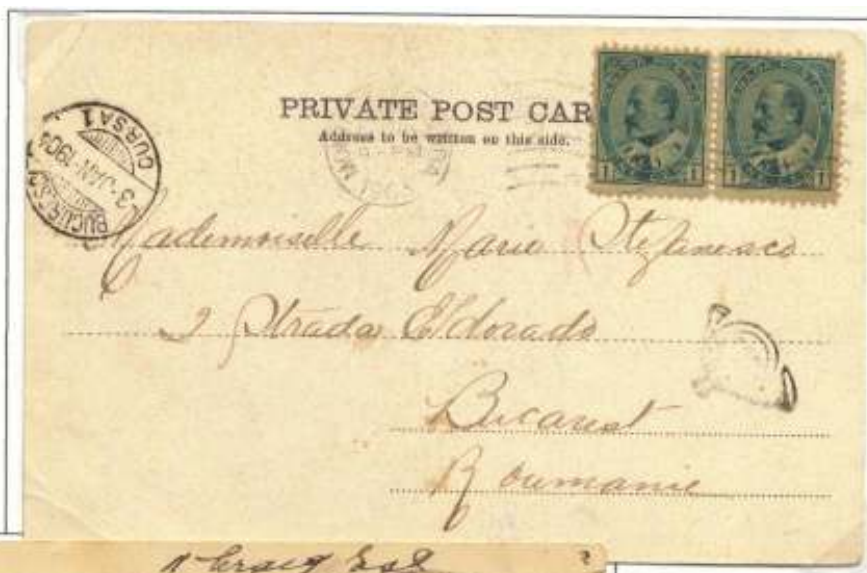 PRIVATE POST CAR
Address to be written on this side.
BUCURESCI
3 JAN 1904
CURSA 1
1 1 1 1
Mademoiselle Marie Stefanesco
2 Strada Eldorado
Bucarest
Roumanie
Esq